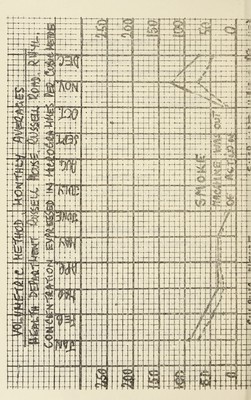 VOLUMETRIC METHOD MONTHLY AVERAGES
HEALTH DEPARTMENT, RUSSELL HOUSE, RUSSELL ROAD, RHYL.
CONCENTRATION EXPRESSED IN MICROGRAMMES PER CUBIC METRE
JAN FEB MAR APR MAY JUNE JULY AUG SEPT OCT NOV DEC
250 250
200 200
150 150
100 100
50 50
0 0
SMOKE
MACHINE WAS OUT
OF ACTION